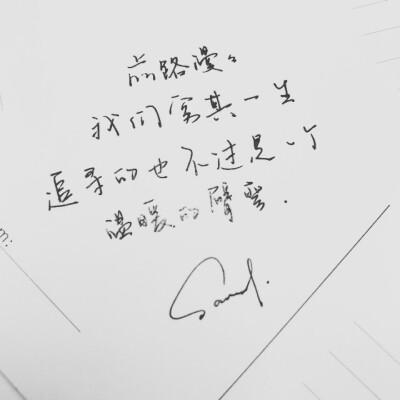 前路漫々
我们穷其一生
追寻的也不过是一个
温暖的臂弯.